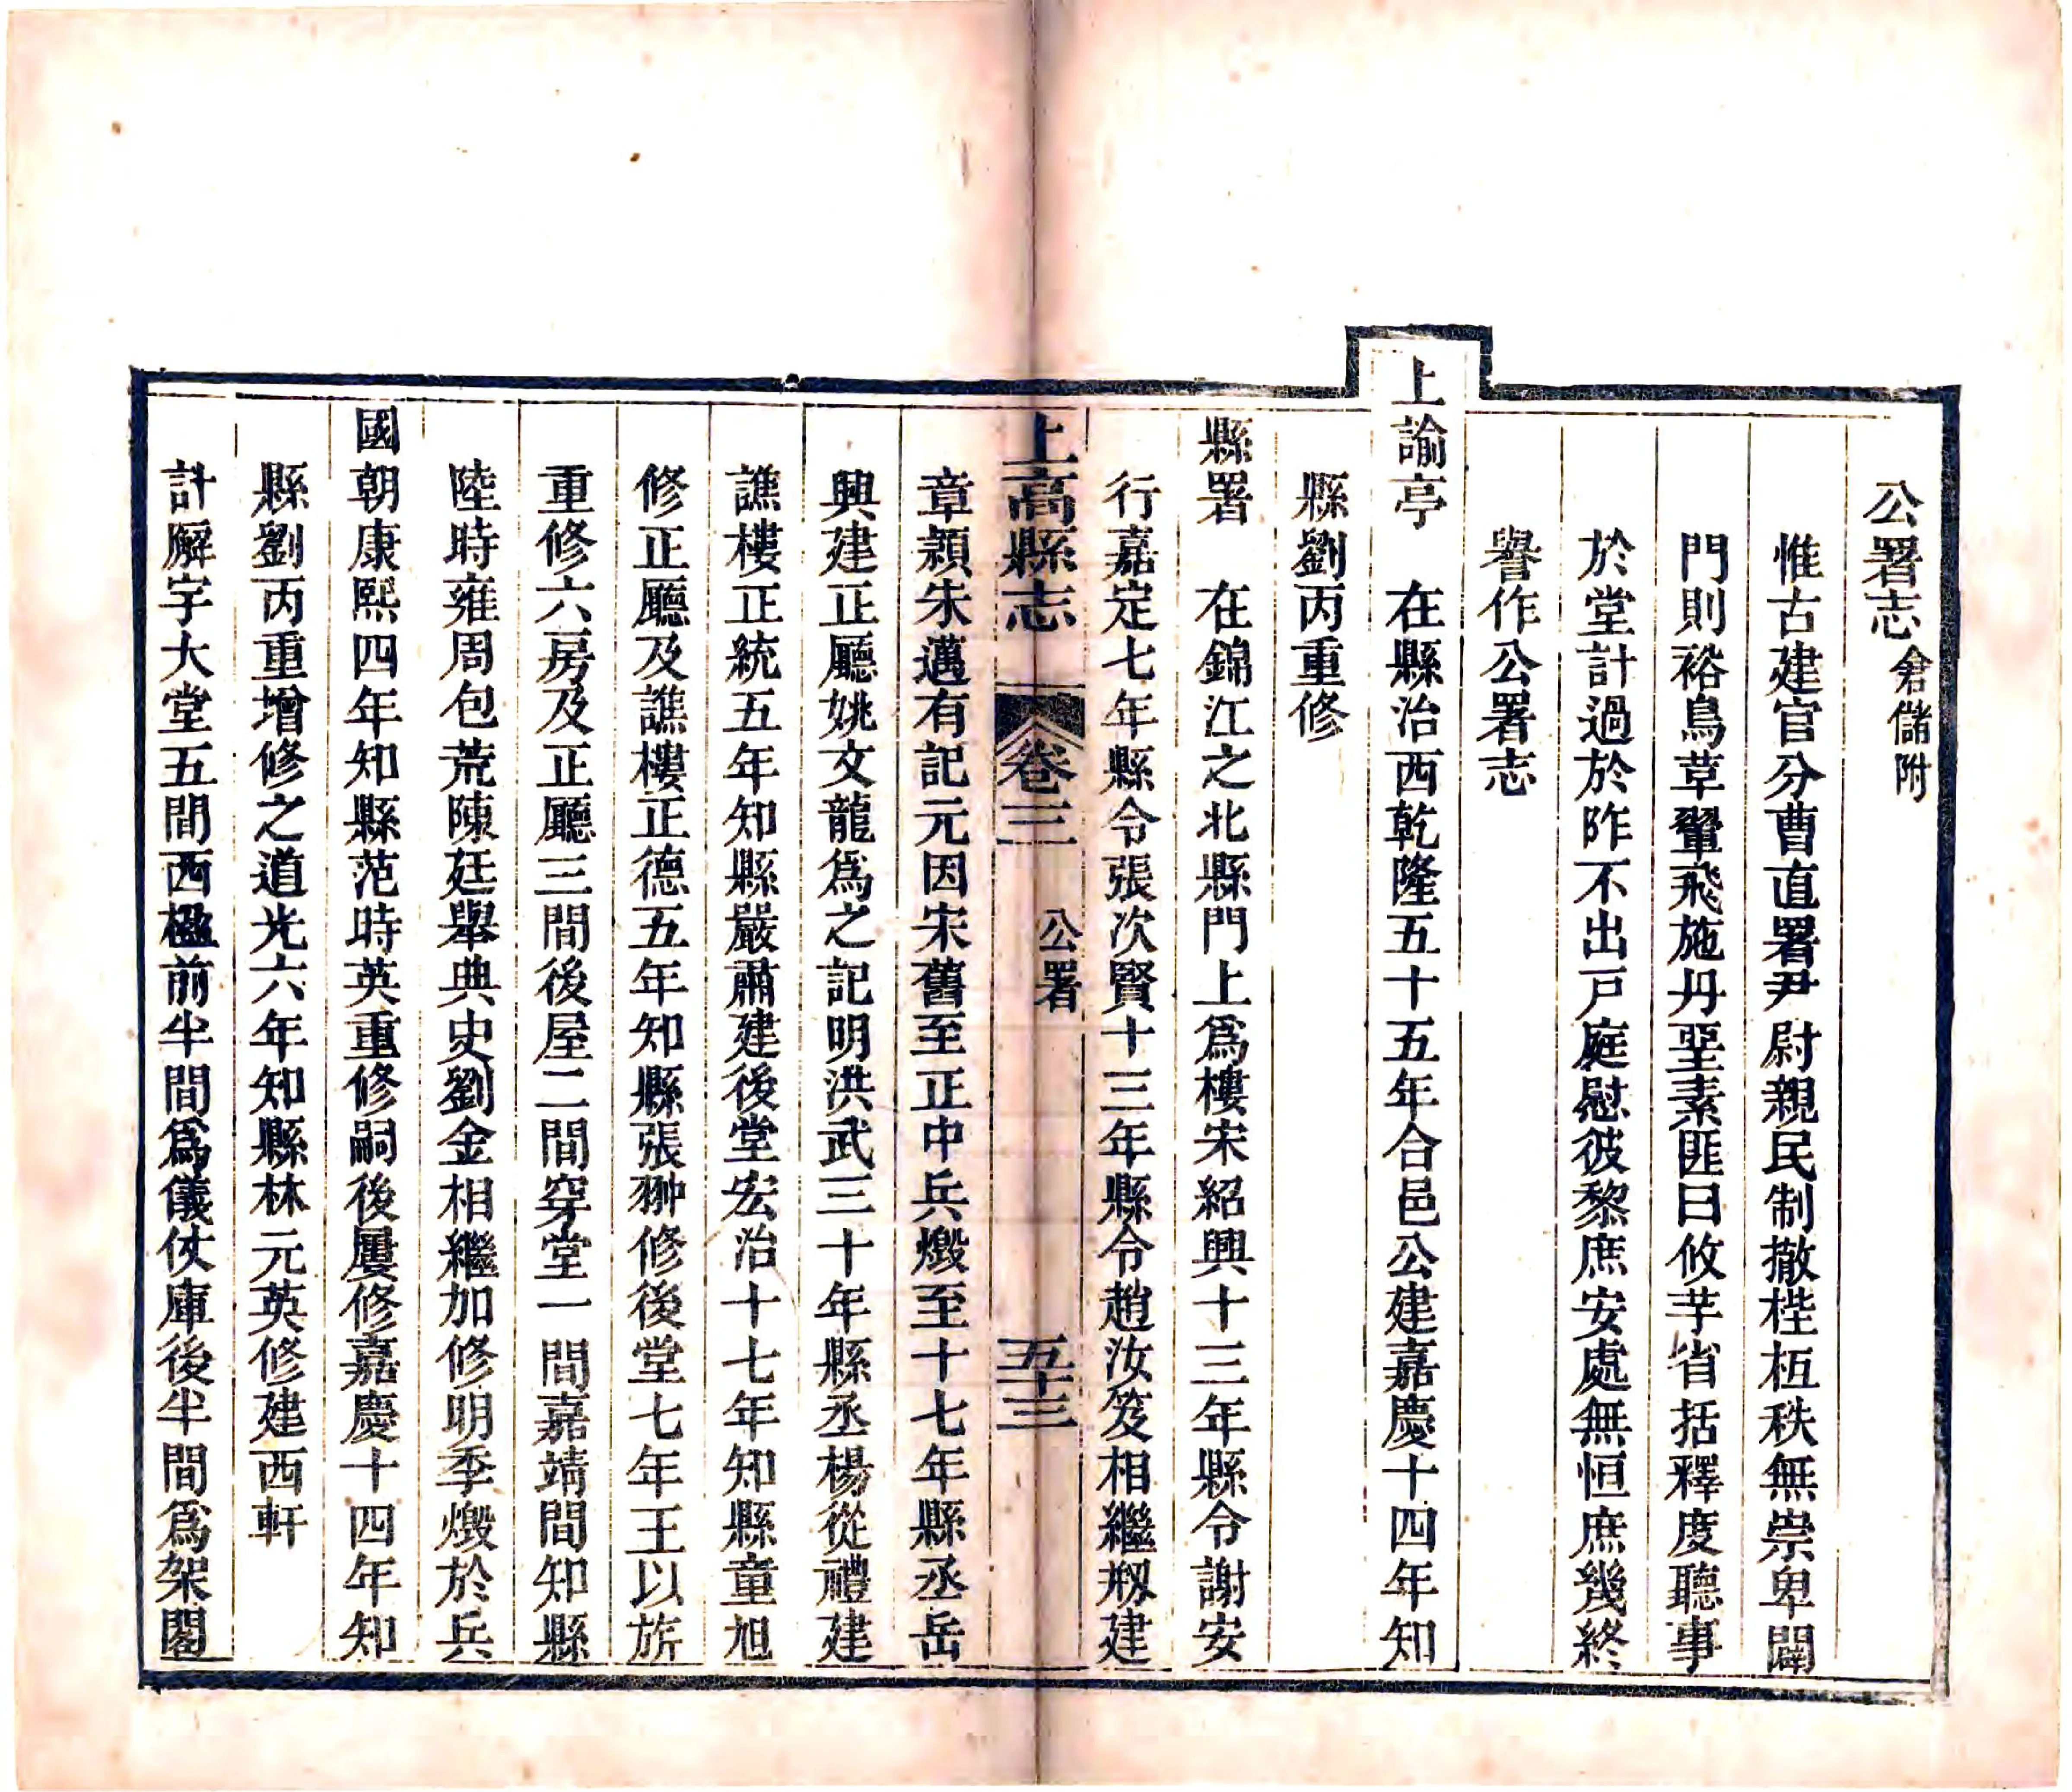 公署志倉儲附
惟古建官分曹直署尹尉親民制撤梐枑秩無崇卑闢
門則裕鳥革翬飛施丹堊素匪曰攸芋省括釋度聽事
於堂計過於阼不出戸庭慰彼黎庶安處無恒庶幾終
譽作公署志
上諭亭　在縣治西乾隆五十五年合邑公建嘉慶十四年知
縣劉丙重修
縣署　在錦江之北縣門上爲樓宋紹興十三年縣令謝安
行嘉定七年縣令張次賢十三年縣令趙汝笈相繼剏建
上高縣志　卷三　公署　五十三
章潁朱邁有記元因宋舊至正中兵燬至十七年縣丞岳
興建正廳姚文龍爲之記明洪武三十年縣丞楊從禮建
譙樓正統五年知縣嚴肅建後堂宏治十七年知縣童旭
修正廳及譙樓正德五年知縣張翀修後堂七年王以旂
重修六房及正廳三間後屋二間穿堂一間嘉靖間知縣
陸時雍周包荒陳廷舉典史劉金相繼加修明季燬於兵
國朝康熙四年知縣范時英重修嗣後屢修嘉慶十四年知
縣劉丙重增修之道光六年知縣林元英修建西軒
計廨宇大堂五間西楹前半間爲儀仗庫後半間爲架閣